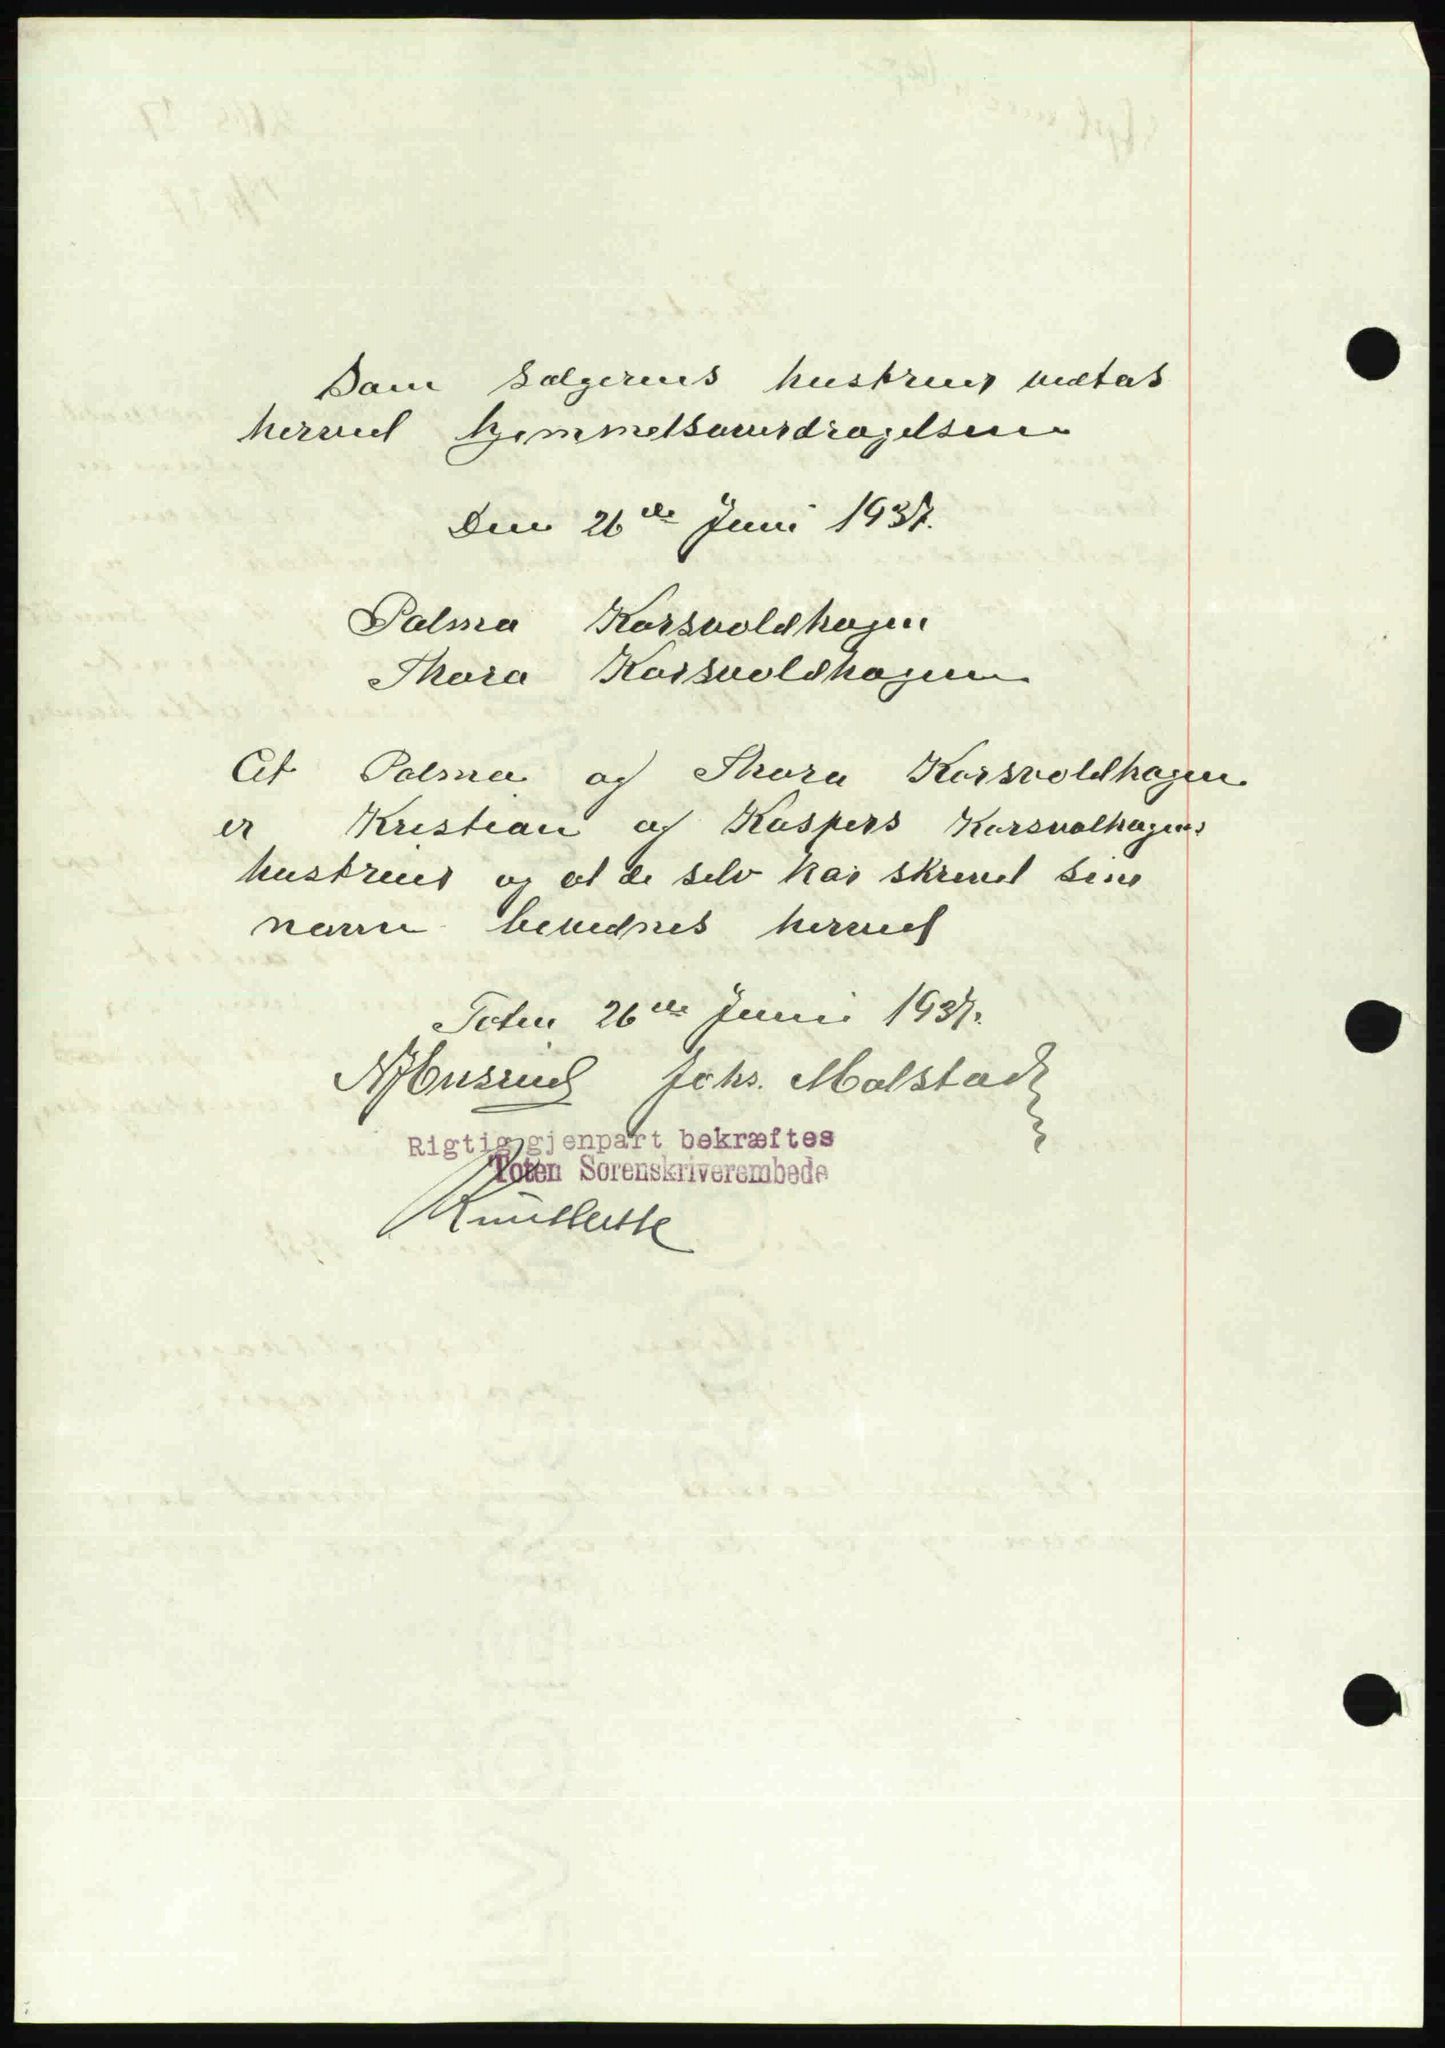 Som sælgerens hustruer vedtas
herved hjemmelsoverdragelsen
Den 26de Juni 1937.
Palma Korsvoldhagen
Thora Korsvoldhagen
At Palma og Thora Korsvoldhagen
er Kristian og Kaspers Korsvolhagens
hustruer og at de selv har skrevet sine
navne bevidnes herved
Toten 26de Juni 1937.
Johs. Molstad
Rigtig gjenpart bekræftes
Toten Sorenskriverembede